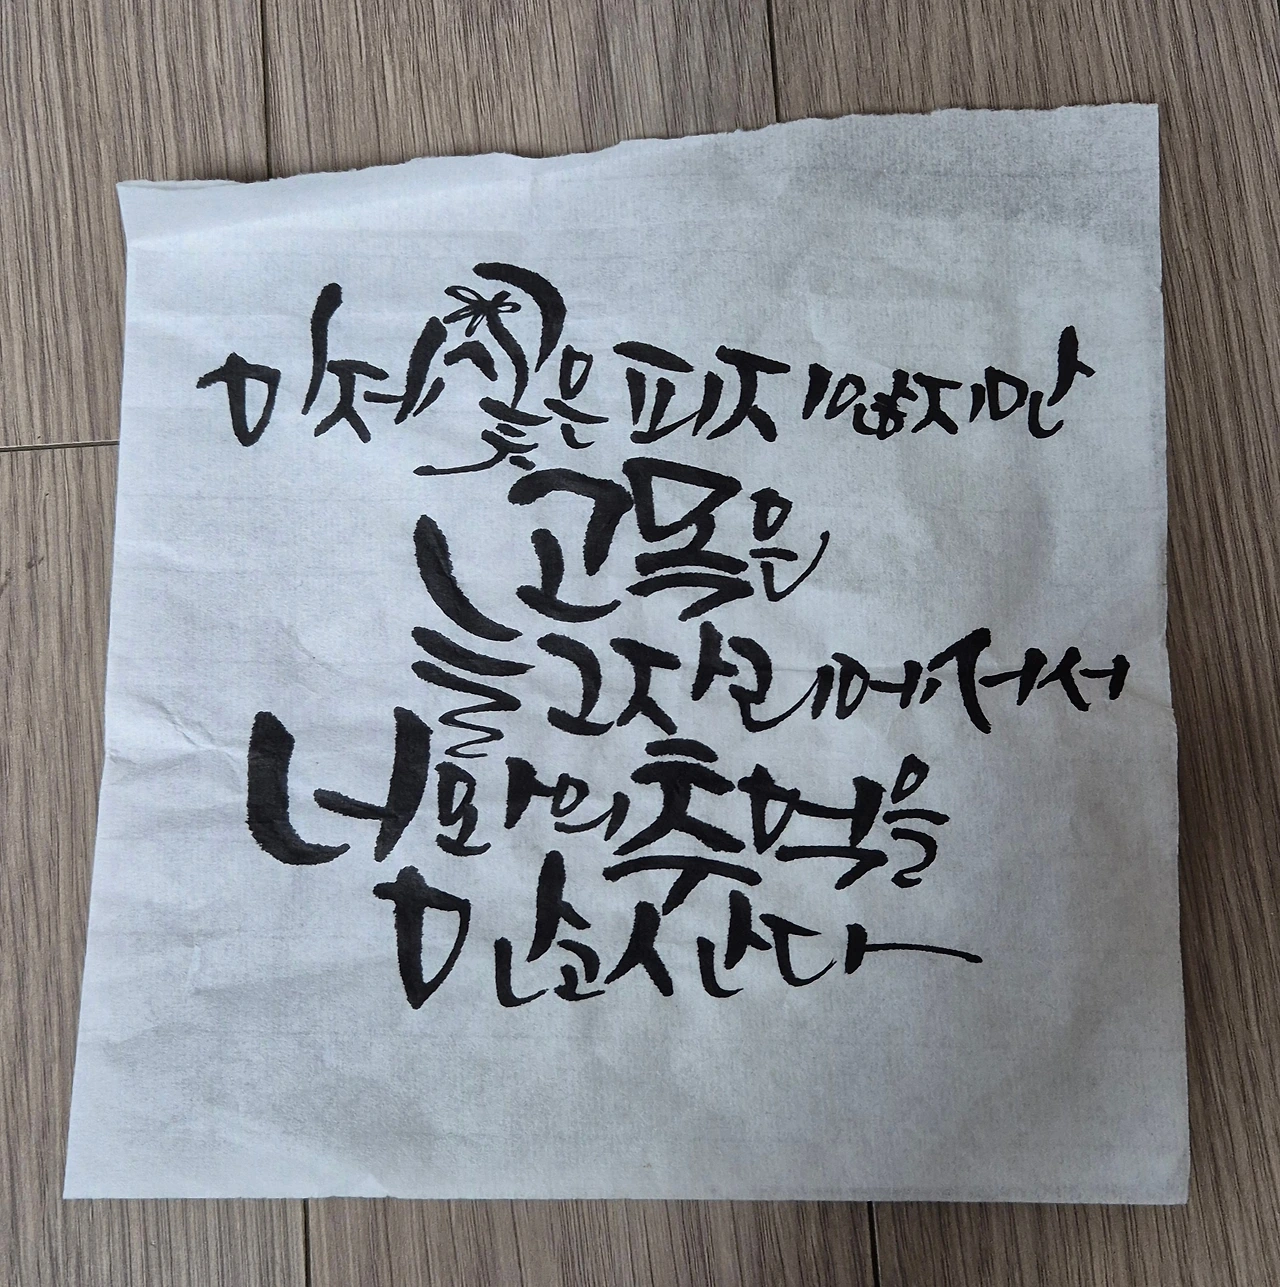 마저 꽃은 피지 않지만
고목은
늘 그자리에서서
너와의 추억을
안고산다